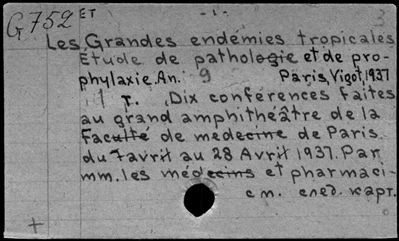 G752 ЕТ - 1. - 3
Les Grandes endémies tropicales
Etude de pathologie et de pro-
phylaxie. An. 9 Paris, Vigot, 1937
1 т. Dix conférences faites
au grand amphithéâtre de la
Faculté de medecine de Paris.
du 7 avril au 28 Avril 1937. Par
mm. les médecins et pharmaci-
см. след. карт.
+